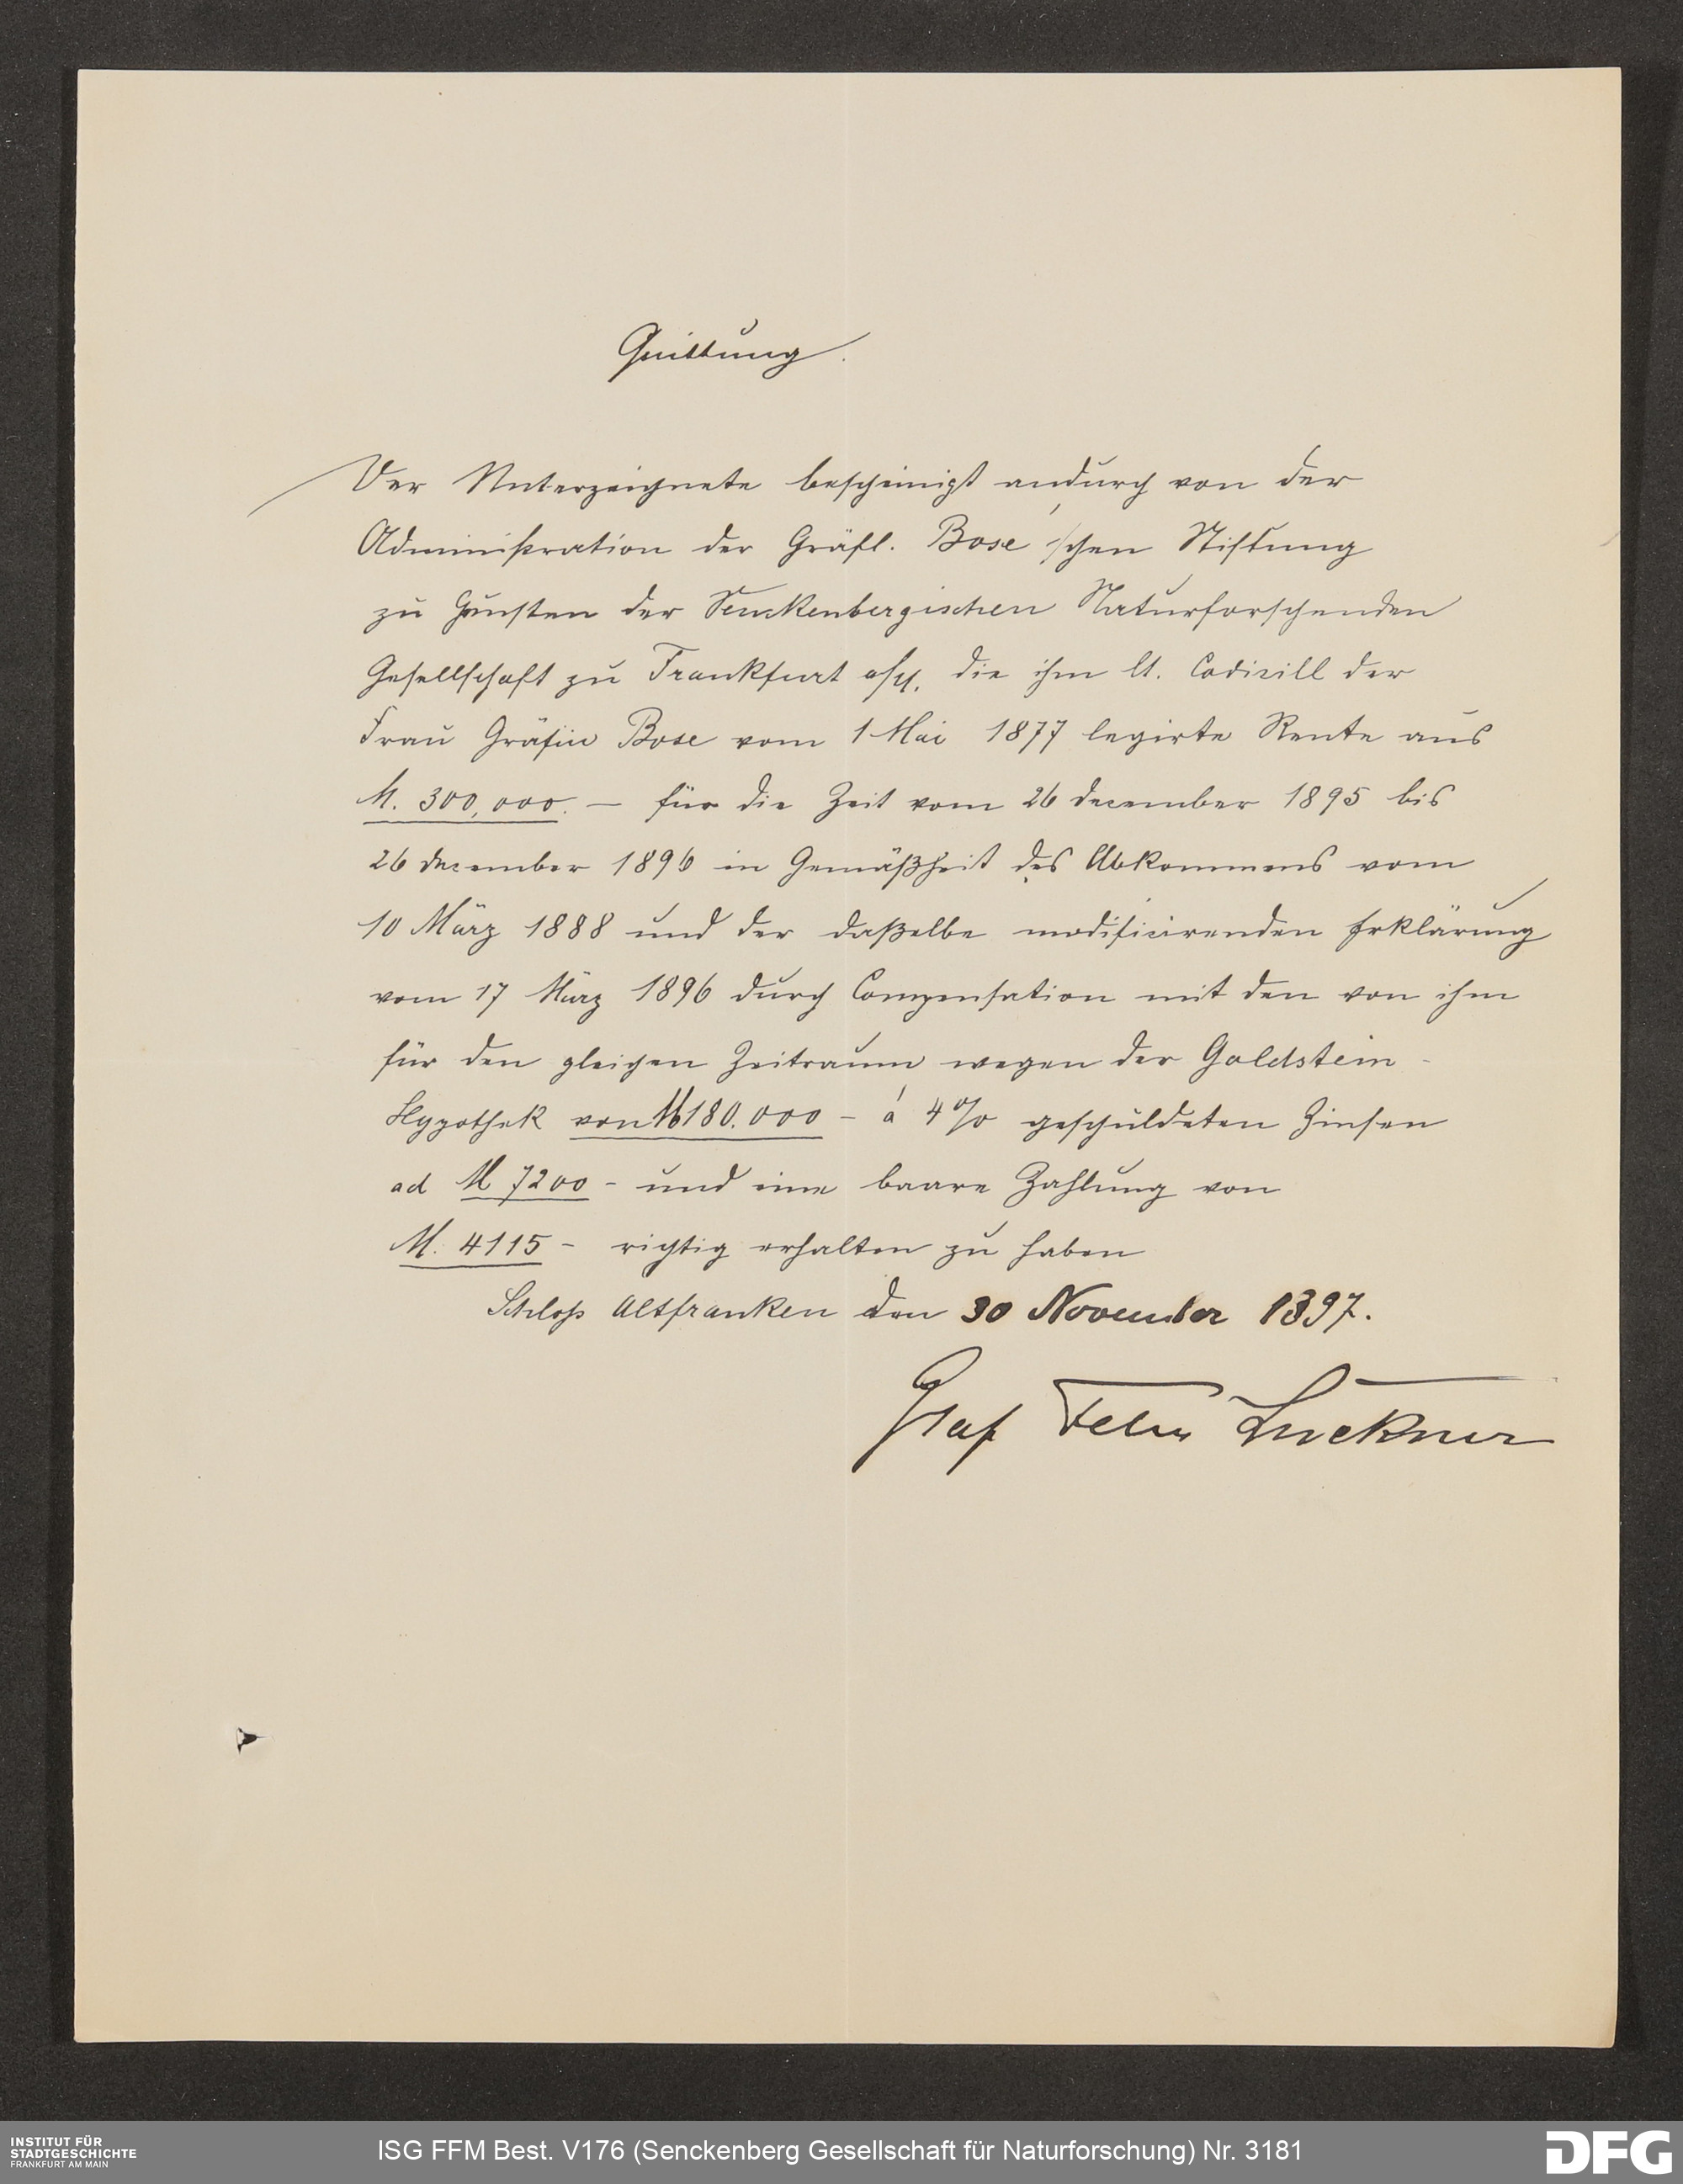 Quittung.
Der Unterzeichnete bescheinigt andurch von der
Administration der Gräfl. Bose'schen Stiftung
zu Gunsten der Senckenbergischen Naturforschenden
Gesellschaft zu Frankfurt a/M. die ihm lt. Codicill der
Frau Gräfin Bose vom 1 Mai 1877 legirte Rente aus
M. 300,000.— für die Zeit vom 26 december 1895 bis
26 december 1896 in Gemäßheit des Abkommens vom
10 März 1888 und der daßelbe modificirenden Erklärung
vom 17 März 1896 durch Compensation mit den von ihm
für den gleichen Zeitraum wegen der Goldstein-
Hypothek von M 180.000 – á 4% geschuldeten Zinsen
ad M 7200 – und eine baare Zahlung von
M. 4115 – richtig erhalten zu haben
Schloß Altfranken den 30 November 1897.
Graf Felix Luckner
INSTITUT FÜR
STADTGESCHICHTE
FRANKFURT AM MAIN
ISG FFM Best. V176 (Senckenberg Gesellschaft für Naturforschung) Nr. 3181
DFG